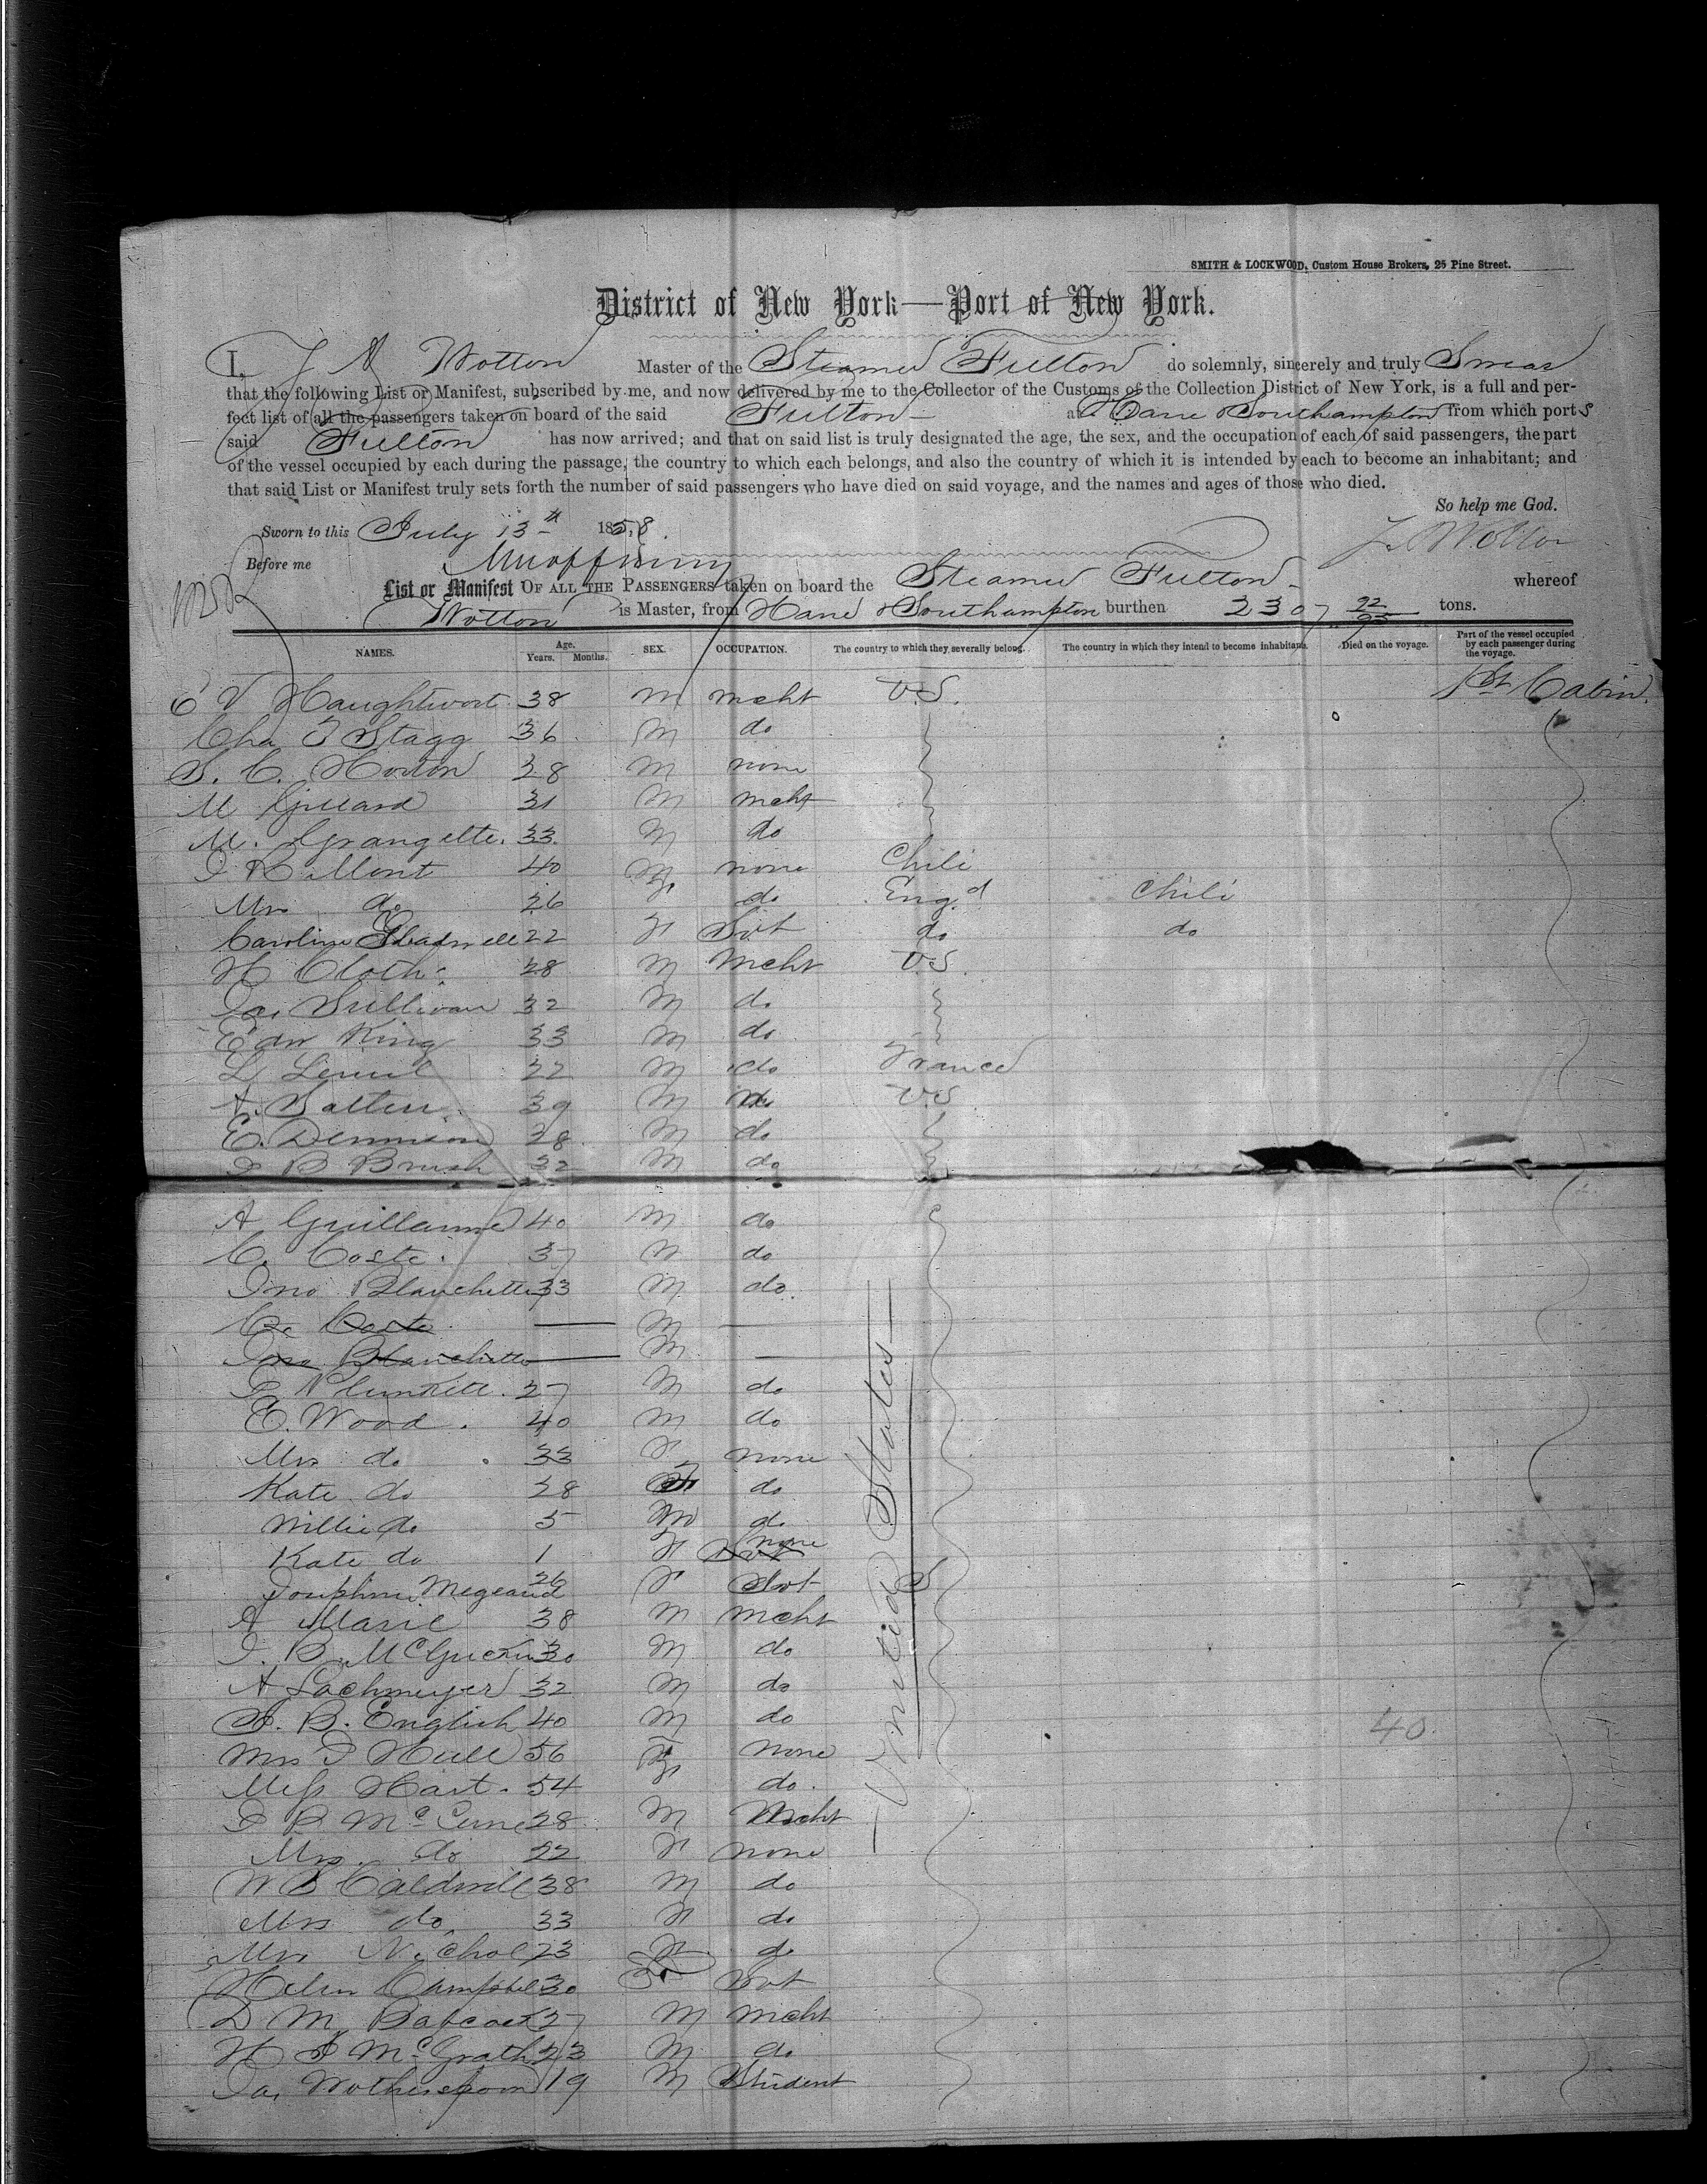 SMITH & LOCKWOOD, Custom House Brokers, 25 Pine Street.
District of New York—Port of New York.
I, J A Wotton Master of the Steamer Fulton do solemnly, sincerely and truly Swear
that the following List or Manifest, subscribed by me, and now delivered by me to the Collector of the Customs of the Collection District of New York, is a full and per-
fect list of all the passengers taken on board of the said Fulton at Havre & Southampton from which ports
said Fulton has now arrived; and that on said list is truly designated the age, the sex, and the occupation of each of said passengers, the part
of the vessel occupied by each during the passage, the country to which each belongs, and also the country of which it is intended by each to become an inhabitant; and
that said List or Manifest truly sets forth the number of said passengers who have died on said voyage, and the names and ages of those who died.
So help me God.
Sworn to this July 13th 1858. J. Wotton
Before me
List or Manifest OF ALL THE PASSENGERS taken on board the Steamer Fulton whereof
Wotton is Master, from Havre & Southampton burthen 2307 22/95 tons.
NAMES. Age. Years. Months. SEX. OCCUPATION. The country to which they severally belong. The country in which they intend to become inhabitants. Died on the voyage. Part of the vessel occupied by each passenger during the voyage.
E V Haughwout 38 M mcht U.S. 1st Cabin
Cha T Stagg 36 M do
S. C. Horton 28 M none
M 31 M mcht
M. Grangette. 33 M do
J B Mont 40 M none Chili
Mrs do 26 F do Eng.d Chili
Caroline 22 F Svt do do
H Cloth 28 M Mcht U.S.
Jas Sullivan 32 M do
Edw King 33 M do
L 22 M do France
A. 39 M do U.S.
E. Dennison 38 M do
J B Brush 32 M do
A Guillaume 40 M do
C. Coste. 37 M do
Jno Blanchette 33 M do.
C. Coste — M —
Jno Blanchette — M —
P Plunkett. 27 M do
E. Wood. 40 M do
Mrs do. 33 F none
Kate do 28 F do
Willie do 5 M do
Kate do 1 F Svt none
Josephine Megeaud 26 F Svt
A Marie 38 M mcht
J. B. McGuckin 30 M do
A Lachmeyer 32 M do
A. B. English 40 M do 40.
Mrs J Hull 56 F none
Miss Hart. 54 F do.
J P Mc 28 M Mcht
Mrs. do 22 F none
W B Caldwell 38 M do
Mrs do. 33 F do
Mrs Nichol 23 F do
Helen Campbel 30 F Svt
D M Babcock 27 M mcht
H J McGrath 23 M do
Jas Wotherspoon 19 M Student
— United States —